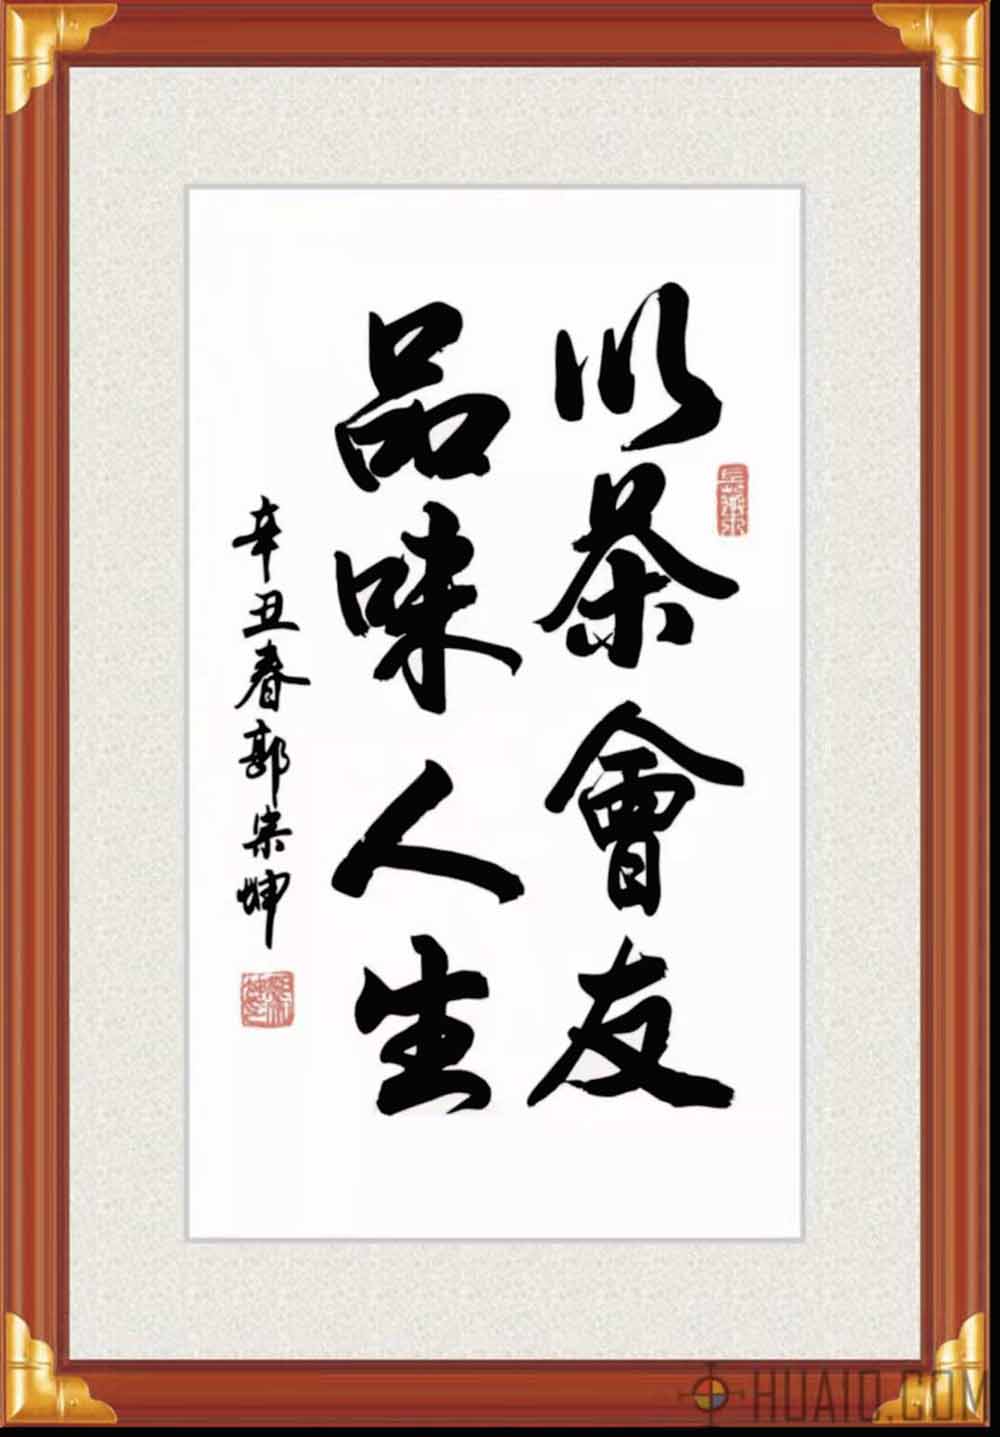 以茶會友
品味人生
辛丑春郭宗坤
HUA10.COM